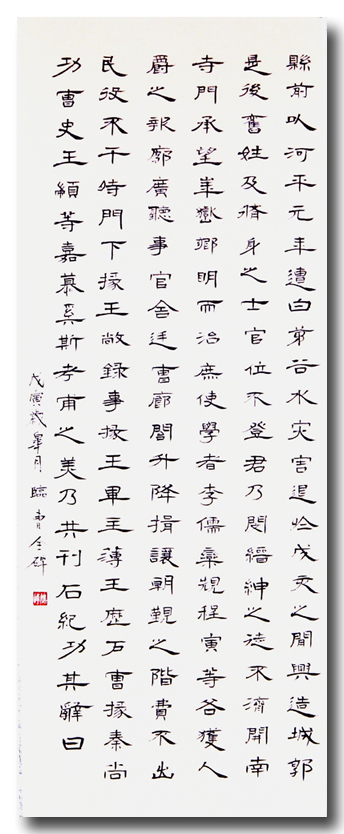 縣前以河平元年遭白茅谷水灾害退於戌亥之間興造城郭
是後舊姓及脩身之士官位不登君乃閔縉紳之徒不濟開南
寺門承望華嶽鄉明而治庶使學者李儒欒規程寅等各獲人
爵之報廓廣聽事官舍廷曹廊閤升降揖讓朝覲之階費不出
民役不干時門下掾王敞錄事掾王畢主薄王歷戶曹掾秦尚
功曹史王顓等嘉慕奚斯考甫之美乃共刊石紀功其辭曰
戊寅歲皋月臨曹全碑